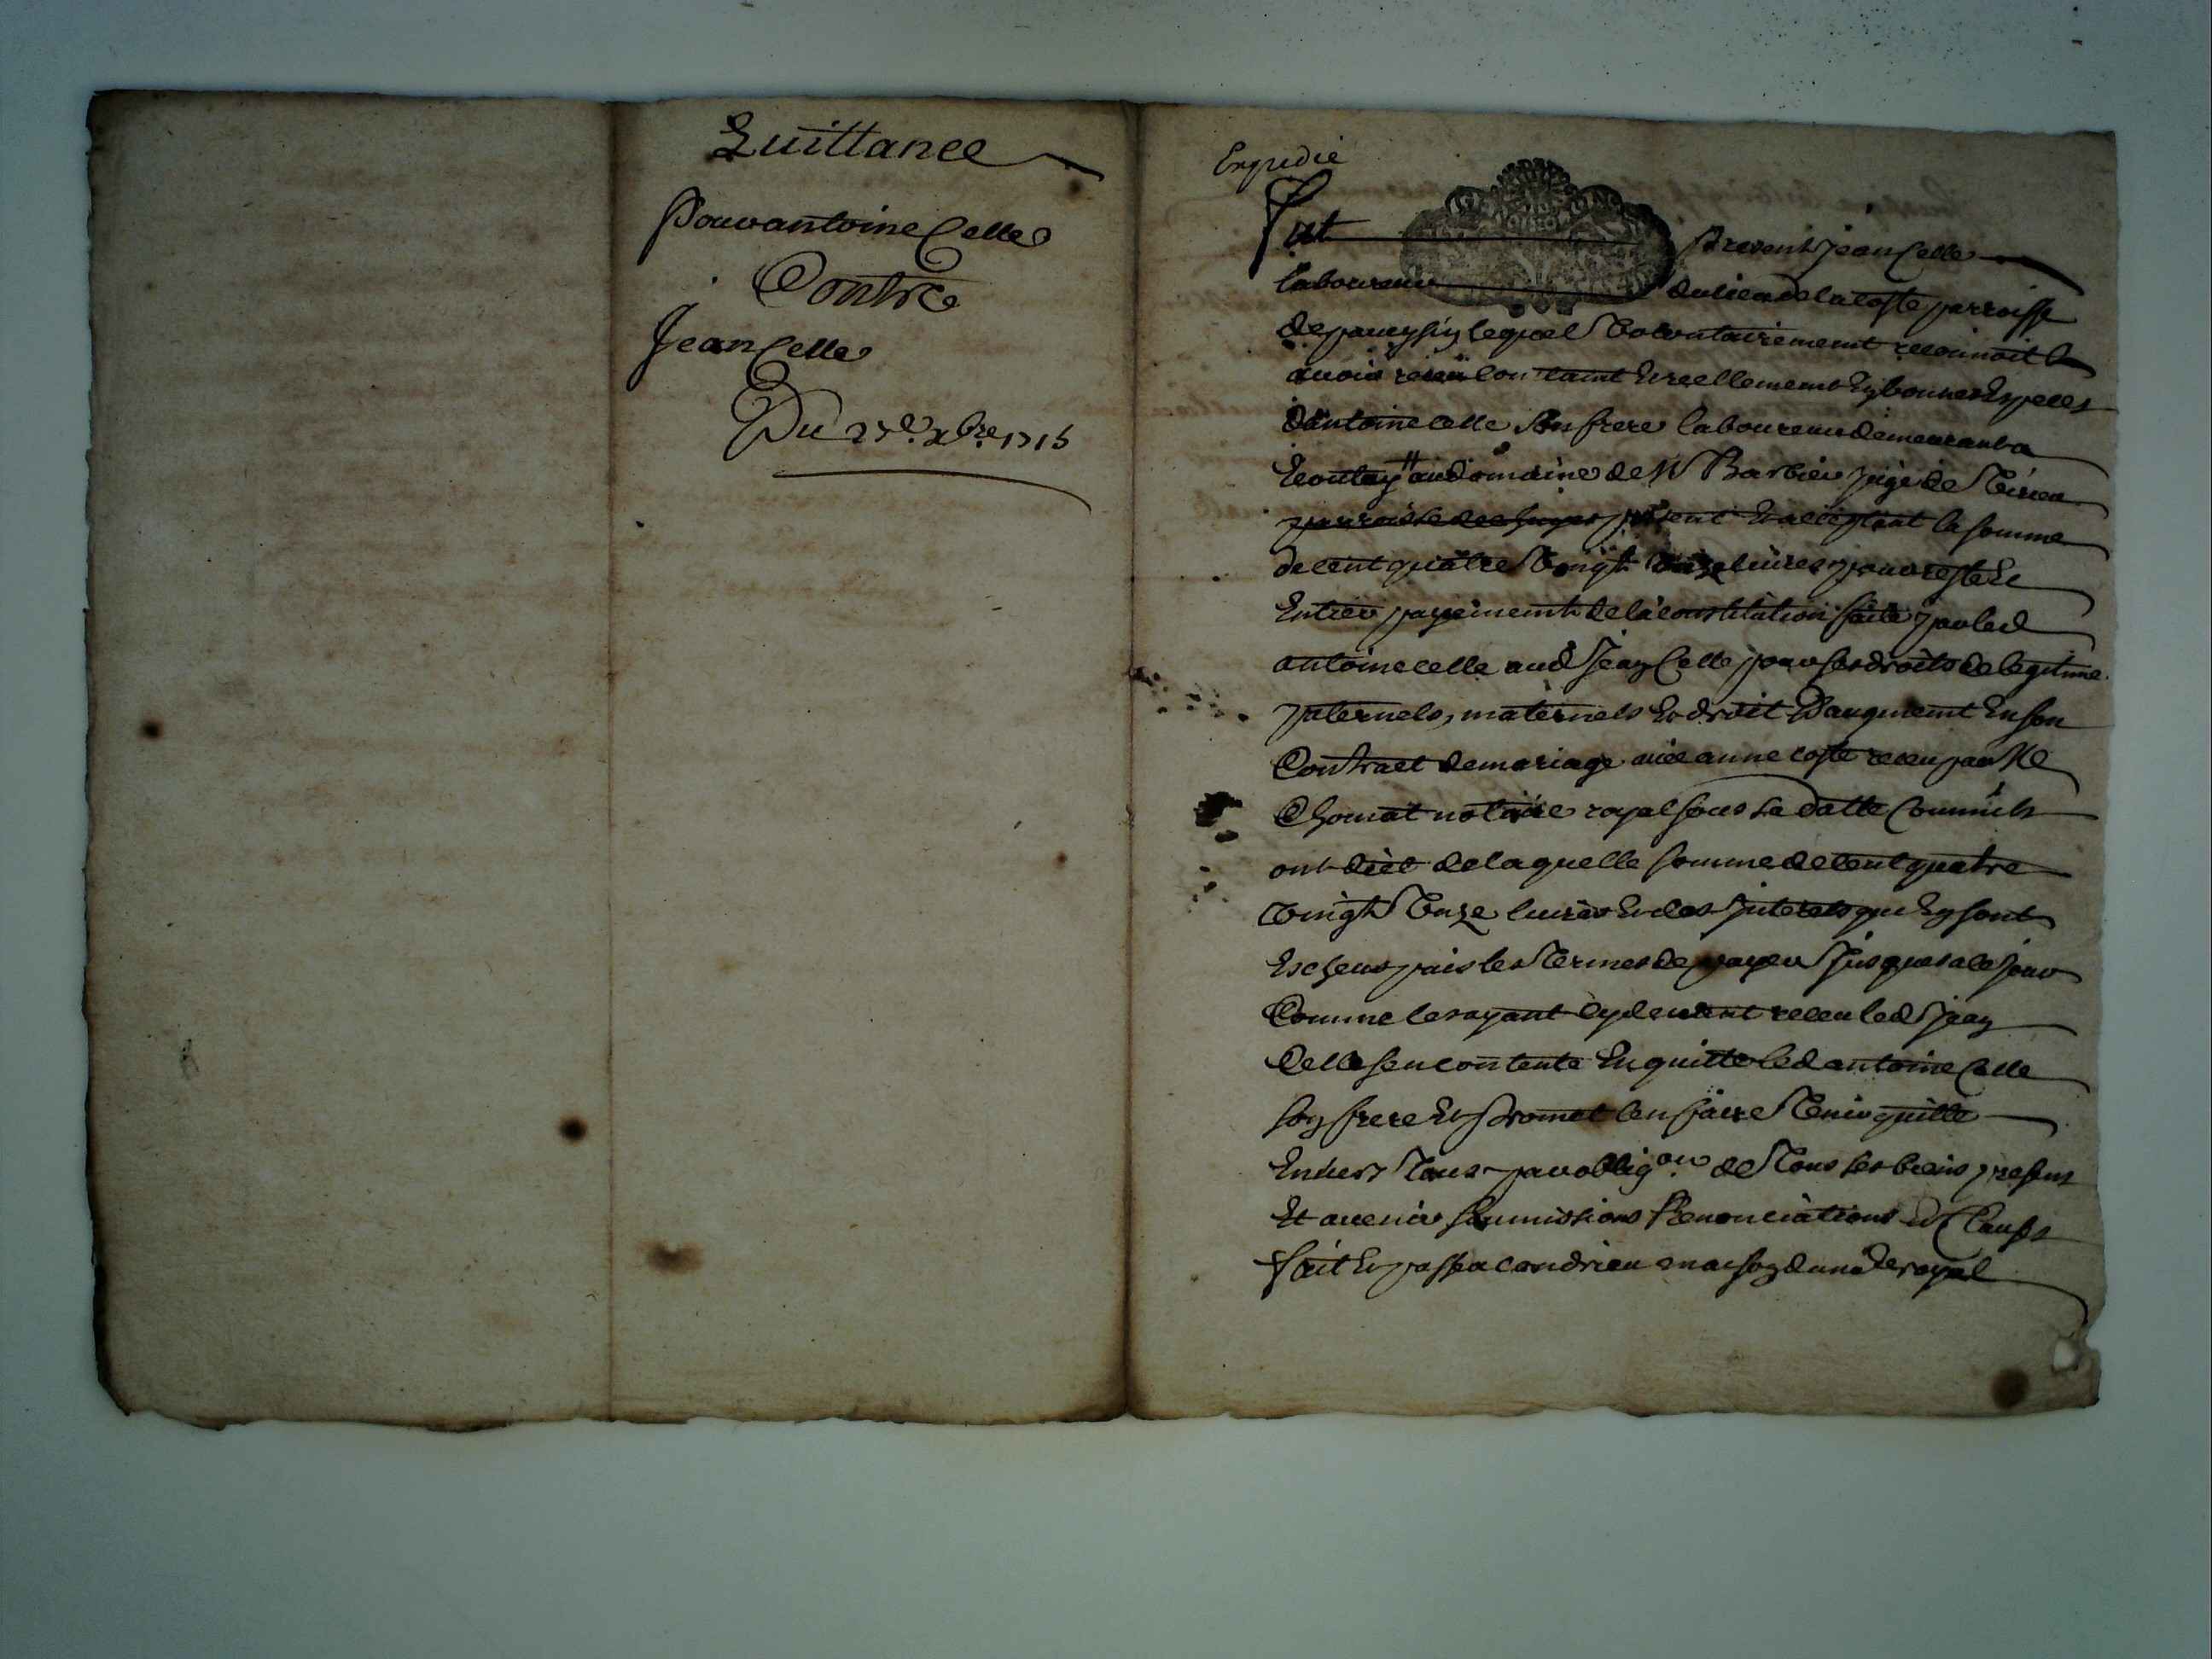 Quittance
Pour antoine Celle
Contre
Jean Celle
Du 27e. xbre. 1715
Expedié
Fut present Jean Celle
laboureur du lieu de la Coste parroisse
de lequel volontairement reconnoit
avoir receu contant et reellement en bonnes especes
d'antoine celle son frere laboureur demeurant a
au domaine de Mr Barbier juge de
parroisse de present et acceptant la somme
de cent quatre vingt onze livres pour reste et
entier payement de la constitution faite par led
antoine celle aud Jean Celle pour ses droits de legitime
paternels, maternels et droit d'augment en son
Contract de mariage avec anne coste receu par Me
Chomat notaire royal sous sa datte comme ils
ont diet de laquelle somme de cent quatre
vingts onze livres et des interets qui en sont
escheus puis les termes de payer jusques a ce jour
Comme les ayant cydevant receu led Jean
Celle sen contente en quitte led antoine Celle
son frere et promet len faire tenir quitte
envers tous par obligon. de tous ses biens presens
et avenir soumissions Renonciations et Clauses
fait et passé a condrieu maison dud nre royal